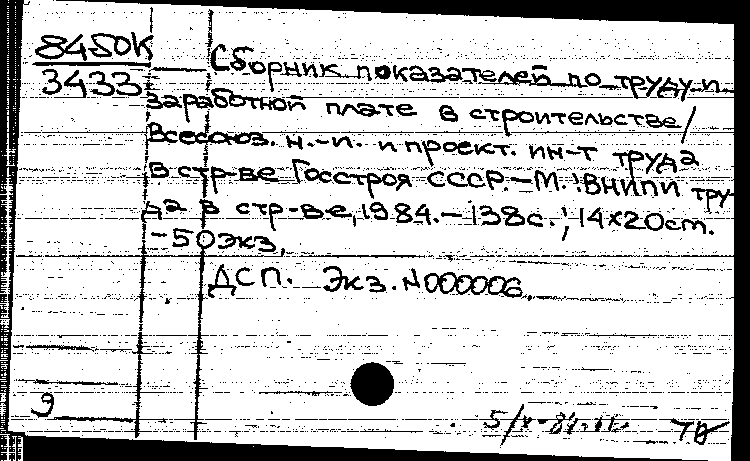 8450К
3433
Сборник показателей по труду и
заработной плате в строительстве/
Всесоюз. н.-и. и проект. ин-т труда
в стр-ве Госстроя СССР.-М.:ВНИПИ тру-
да в стр-ве, 1984.-138с.; 14х20cm.
-50экз.
ДСП. Экз.N000006.
9
5/х-84.